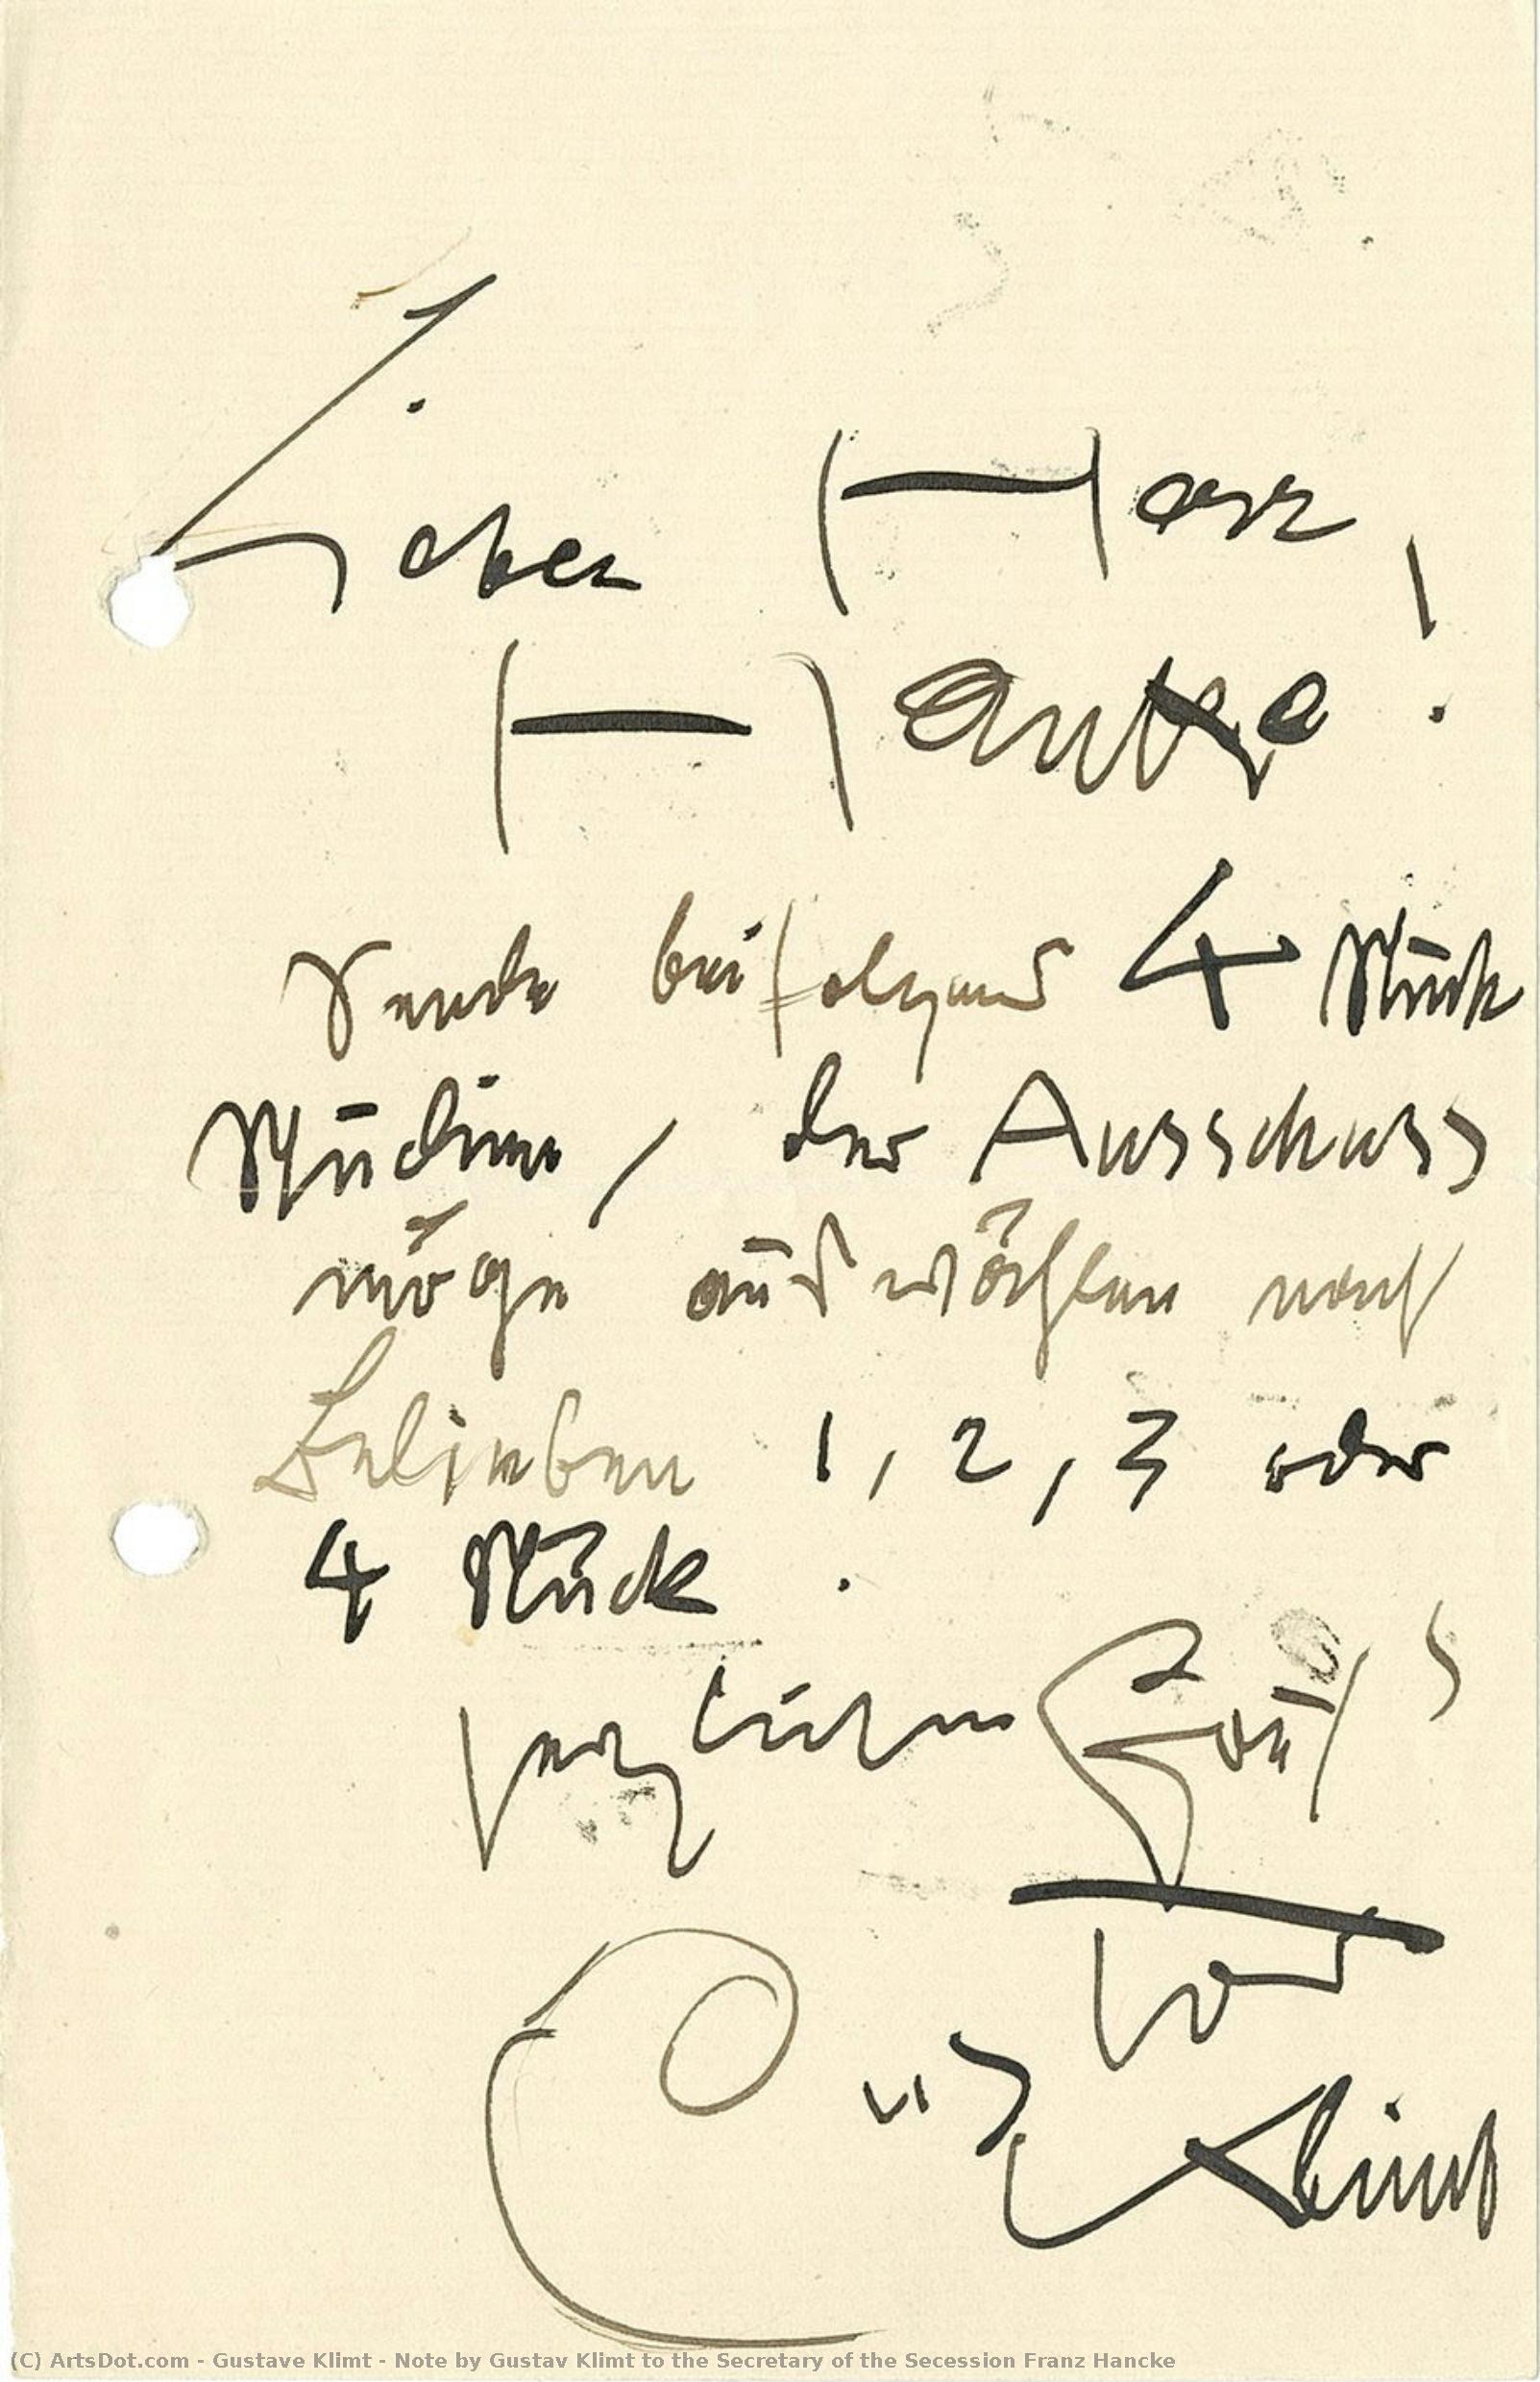 Lieber Herr
Hanke!
Sende beifolgend 4 Stück
Studien, der Ausschuss
möge auswählen nach
Belieben 1, 2, 3 oder
4 Stück.
herzlichen Gruß
Ihr
Klimt
(C) ArtsDot.com - Gustave Klimt - Note by Gustav Klimt to the Secretary of the Secession Franz Hancke